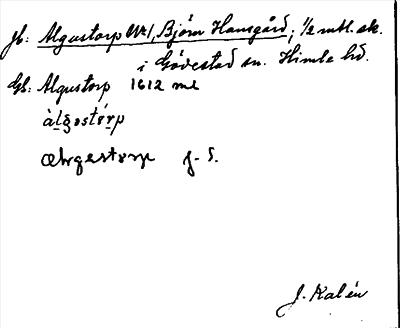 Jb: Algustorp No 1, Björn Hansgård, 1/2 mtl. sk.
i Gödestad sn. Himle hd.
Gb: Algustorp 1612 ml
àlgostórp
f. S.
J. Kalén